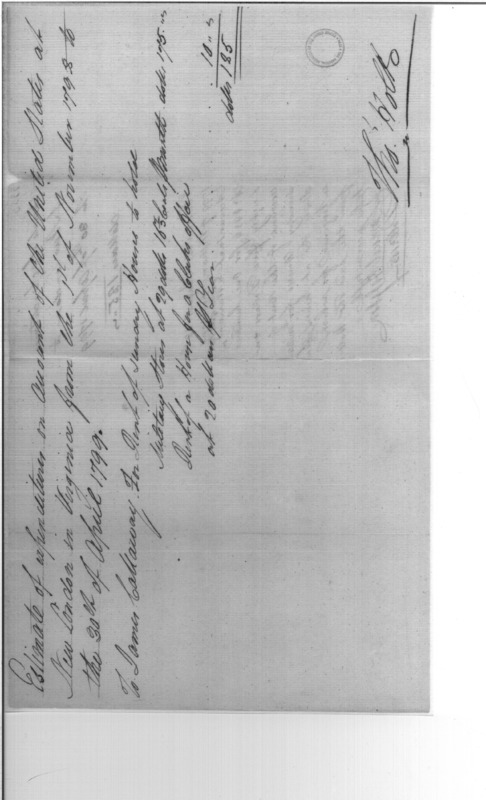 Estimate of expenditures on account of the United States at
New London in Virginia from the 1st of November 1798 to
the 30th of April 1799.
To James Callaway For Rent of sundry Houses to hold
Military Stores at 29 dolls 16 Cents Month dolls 175 "
Rent of a House for a Clerks office
at 20 dollars Year 10 "
dolls 185